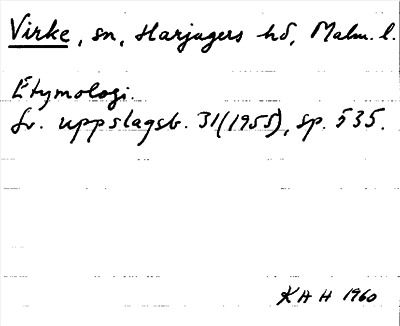 Virke, sn, Harjagers hd, Malm. l.
Etymologi.
Sv. uppslagsb. 31(1955), sp. 535.
KAH 1960